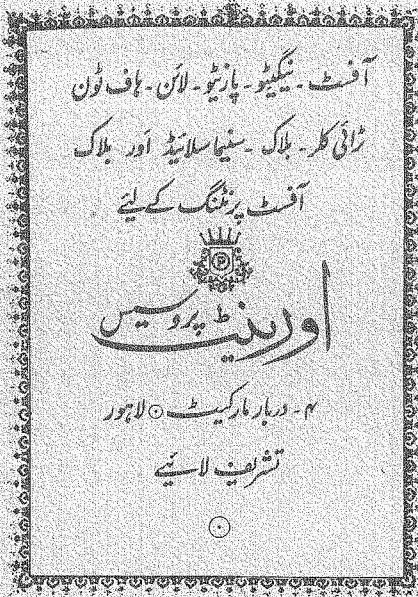 آفسٹ ۔ نیگیٹو ۔ پازیٹو ۔ لائن ۔ ہاف ٹون
ٹرائی کلر ۔ بلاک ۔ سنیما سلائیڈ اور بلاک
آفسٹ پرنٹنگ کے لیئے
P
اورینٹ پروسیس
۴ ۔ دربار مارکیٹ ⊙ لاہور
تشریف لائیے